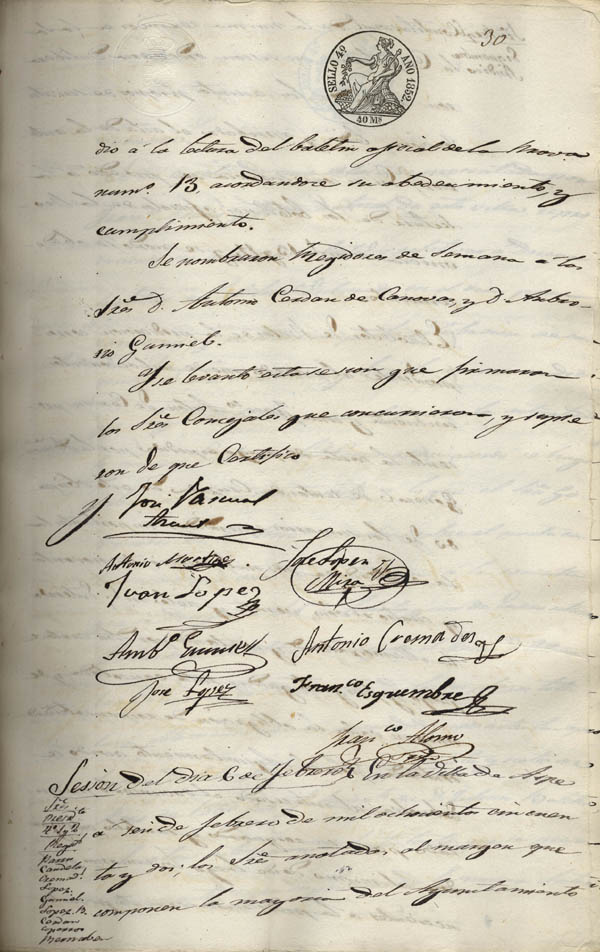 30
SELLO 4º AÑO 1852
40 Ms
dio á la lectura del boletin oficial de la Prova
numº 13 acordandose su obedecimiento, y
cumplimiento.
Se nombraron Regidores de Semana á los
Sres D. Antonio Cerdan de Canovas, y D. Ambro-
sio Gumiel.
Y se levantó esta sesion que firmaron
los Sres Concejales que concurrieron, y supie
ron de que Certifico
José Pascual
Antonio Martinez
José Lopez
Mira
Juan Lopez
Ambº Gumiel
Antonio Cremades
José Lopez
Franco Esquembre
Franco Alonso
Sesion del dia 6 de Febrero
En la Villa de Aspe
á seis de febrero de mil ochocientos cincuen
ta y dos; los Sres anotados al margen que
componen la mayoria del Ayuntamiento
Sres
Presidte
Candela
Cremads
Lopez
Gumiel
Lopez B.
Cerdan
Bernabeu